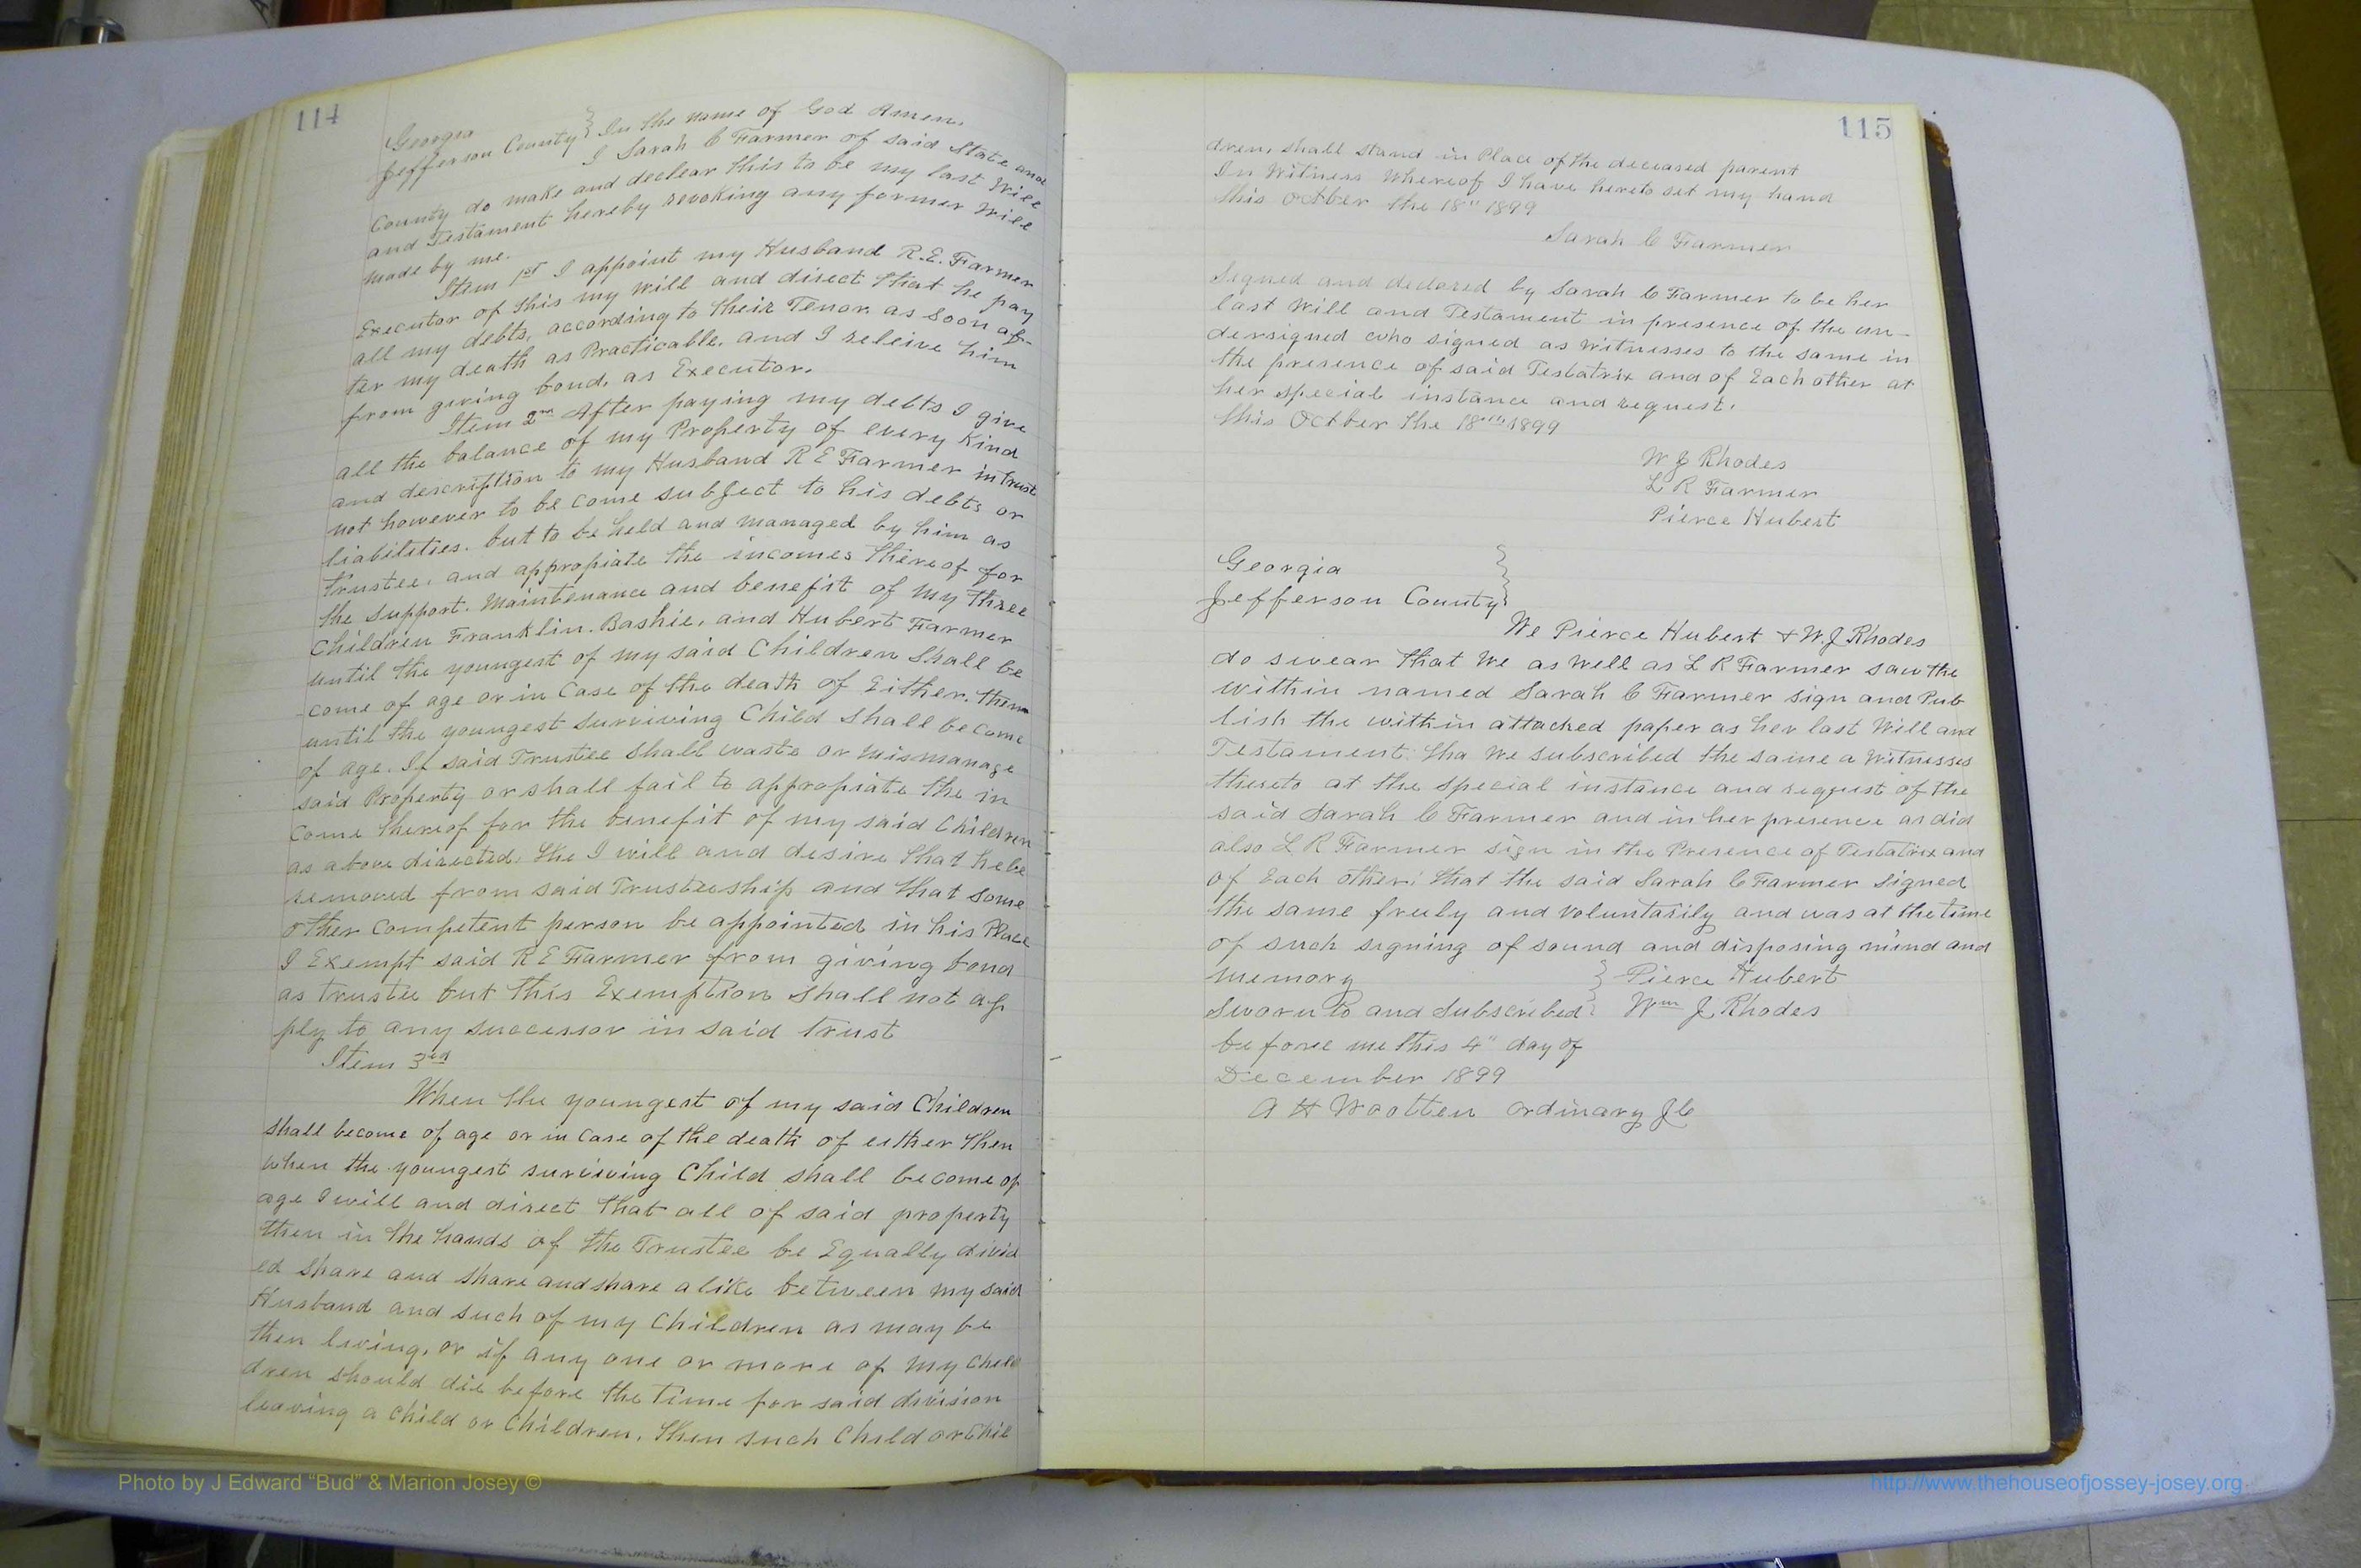 114
Georgia
Jefferson County } In the name of God Amen.
I Sarah C Farmer of said State and
County do make and declear this to be my last Will
and Testament hereby revoking any former Will
made by me.
Item 1st I appoint my Husband R.E. Farmer
Executor of this my will and direct that he pay
all my debts, according to their Tenor as soon af-
ter my death as Practicable. and I releive him
from giving bond, as Executor.
Item 2nd After paying my debts I give
all the balance of my Property of every Kind
and description to my Husband R E Farmer in trust
not however to be come subject to his debts or
liabilities. but to be held and managed by him as
trustee, and appropiate the incomes thereof for
the support. Maintenance and benefit of my three
children Franklin. Bashie, and Hubert Farmer
until the youngest of my said Children shall be
-come of age or in Case of the death of Either. then
until the youngest surviving Child shall become
of age. If said Trustee shall waste or mismanage
said Property or shall fail to appropiate the in
come thereof for the benefit of my said Children
as above directed. the I will and desire that he be
removed from said Trusteeship and that some
other Competent person be appointed in his Place
I Exempt said R E Farmer from giving bond
as trustee but this Exemption shall not ap
ply to any successor in said trust
Item 3rd
When the youngest of my said Children
shall become of age or in Case of the death of either then
when the youngest surviving Child shall become of
age I will and direct that all of said property
then in the hands of the Trustee be Equally divid
ed share and share and share alike between my said
Husband and such of my Children as may be
then living, or if any one or more of my Chil
dren should die before the time for said division
leaving a Child or Children, then such Child or Chil
115
dren, shall stand in Place of the deceased parent
In Witness whereof I have hereto set my hand
this Octber the 18" 1899
Sarah C Farmer
Signed and declared by Sarah C Farmer to be her
last Will and Testament in presence of the un-
dersigned who signed as witnesses to the same in
the presence of said Testatrix and of Each other at
her special instance and request.
this Octber the 18th 1899
W J Rhodes
L R Farmer
Pierce Hubert
Georgia
Jefferson County }
We Pierce Hubert & W. J Rhodes
do swear that we as well as L R Farmer saw the
within named Sarah C Farmer sign and Pub
lish the within attached paper as her last Will and
Testament. tha We subscribed the same a Witnesses
thereto at the special instance and request of the
said Sarah C Farmer and in her presence as did
also L R Farmer sign in the Presence of Testatrix and
of Each other; that the said Sarah C Farmer signed
the same freely and voluntarily and was at the time
of such signing of sound and disposing mind and
memory } Pierce Hubert
Sworn to and Subscribed } Wm J Rhodes
before me this 4" day of
December 1899
A H Wootten ordinary J C
Photo by J Edward “Bud” & Marion Josey ©
http://www.thehouseofjossey-josey.org